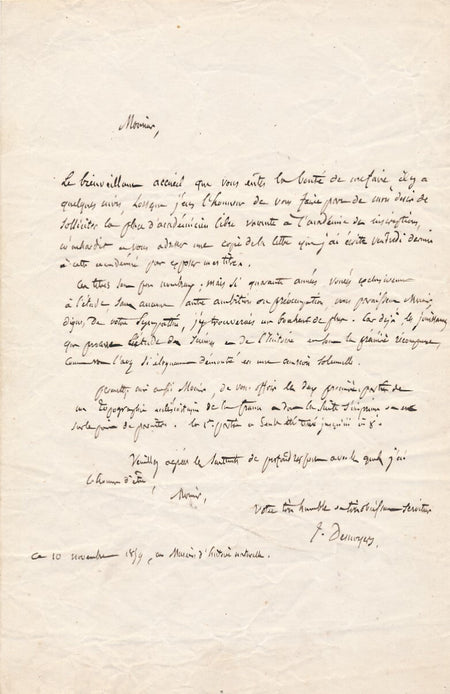 Monsieur,
Le bienveillant accueil que vous eûtes la bonté de me faire, il y a
quelques mois, lorsque j'eus l'honneur de vous faire part de mon désir de
solliciter la place d'académicien libre vacante à l'académie des inscriptions,
m'enhardit à vous adresser une copie de la lettre que j'ai écrite vendredi dernier
à cette académie pour exposer mes titres.
Ces titres sont peu nombreux, mais si quarante années vouées exclusivement
à l'étude, sans aucune autre ambition ou préoccupation, vous paraissent Monsieur
dignes de votre sympathie, j'y trouverais un bonheur de plus. Car déjà les jouissances
que procure l'étude des sciences et de l'histoire en sont la première récompense,
comme vous l'avez si éloquemment démontré en une occasion solennelle.
Permettez moi aussi Monsieur, de vous offrir les deux premières parties de
ma Topographie ecclésiastique de la France dont la suite
sur le point de paraître. La 1ere partie a été tirée jusqu'ici à
Veuillez agréer les sentiments de profond respect avec lesquels j'ai
l'honneur d'être
Monsieur,
Votre très humble et très obéissant serviteur
J. Desnoyers,
Ce 10 novembre 1859, au Muséum d'histoire naturelle.